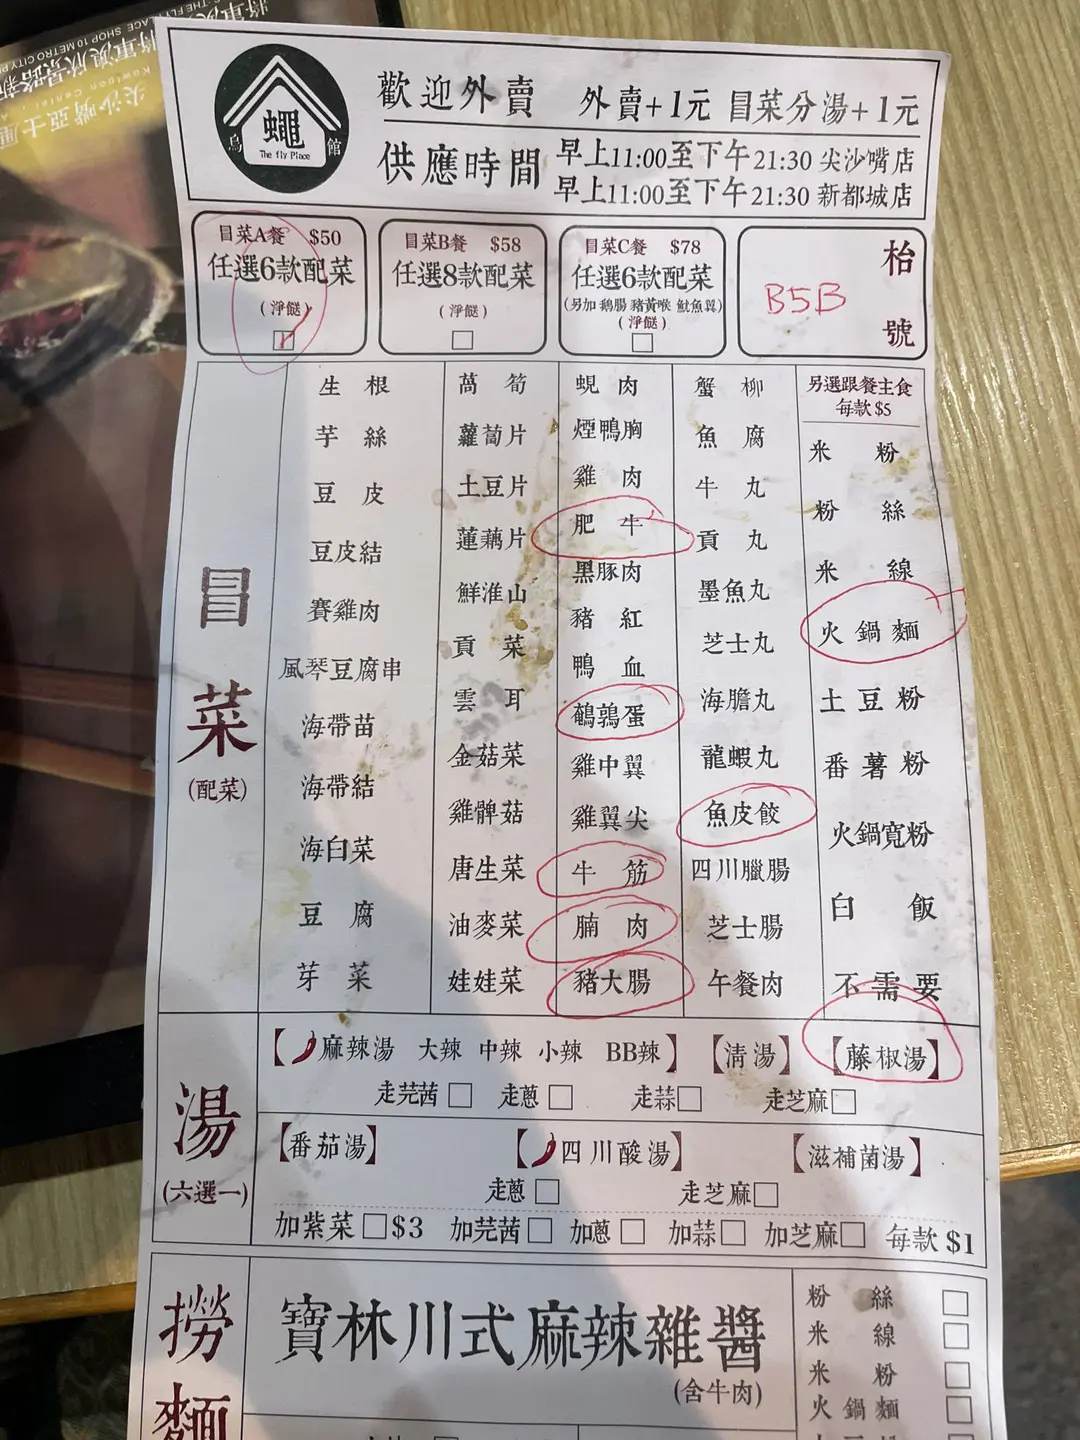 烏蠅館
The fly Place
歡迎外賣 外賣+1元 冒菜分湯+1元
供應時間
早上11:00至下午21:30 尖沙嘴店
早上11:00至下午21:30 新都城店
冒菜A餐 $50
任選6款配菜
(淨餸)
冒菜B餐 $58
任選8款配菜
(淨餸)
冒菜C餐 $78
任選6款配菜
(另加 鵝腸 豬黃喉 魷魚翼)
(淨餸)
枱號
B5B
冒菜
(配菜)
生根
芋絲
豆皮
豆皮結
賽雞肉
風琴豆腐串
海帶苗
海帶結
海白菜
豆腐
芽菜
萵筍
蘿蔔片
土豆片
蓮藕片
鮮淮山
貢菜
雲耳
金菇菜
雞髀菇
唐生菜
油麥菜
娃娃菜
蜆肉
煙鴨胸
雞肉
肥牛
黑豚肉
豬紅
鴨血
鵪鶉蛋
雞中翼
雞翼尖
牛筋
腩肉
豬大腸
蟹柳
魚腐
牛丸
貢丸
墨魚丸
芝士丸
海膽丸
龍蝦丸
魚皮餃
四川臘腸
芝士腸
午餐肉
另選跟餐主食
每款$5
米粉
粉絲
米線
火鍋麵
土豆粉
番薯粉
火鍋寬粉
白飯
不需要
湯
(六選一)
【麻辣湯 大辣 中辣 小辣 BB辣】 【清湯】 【藤椒湯】
走芫茜 走蔥 走蒜 走芝麻
【番茄湯】 【四川酸湯】 【滋補菌湯】
走蔥 走芝麻
加紫菜 $3 加芫茜 加蔥 加蒜 加芝麻 每款 $1
撈麵
寶林川式麻辣雜醬
(含牛肉)
粉絲
米線
米粉
火鍋麵